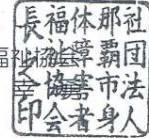 福祉協会
社団法人
那覇市身
体障害者
福祉協会
長之印